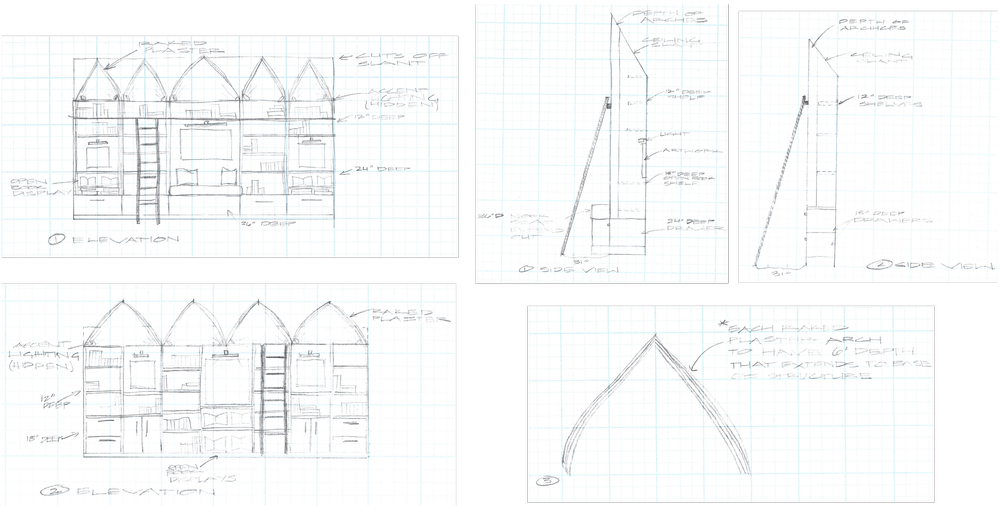 BAKED
PLASTER
CUTS OFF
SLANT
ACCENT
LIGHTING
(HIDDEN)
12" DEEP
24" DEEP
OPEN
BOOK
DISPLAY
36" DEEP
1 ELEVATION
DEPTH OF
ARCHES
CEILING
SLANT
12" DEEP
SHELF
LIGHT
ARTWORK
OPEN BOOK
SHELF
24" DEEP
DRAWER
31"
1 SIDE VIEW
DEPTH OF
ARCHES
CEILING
SLANT
12" DEEP
SHELVING
18" DEEP
DRAWERS
31"
2 SIDE VIEW
BAKED
PLASTER
ACCENT
LIGHTING
(HIDDEN)
12"
DEEP
18" DEEP
OPEN
BOOK
DISPLAYS
2 ELEVATION
* EACH BAKED
PLASTER ARCH
TO HAVE 6" DEPTH
THAT EXTENDS TO BASE
OF STRUCTURE
3